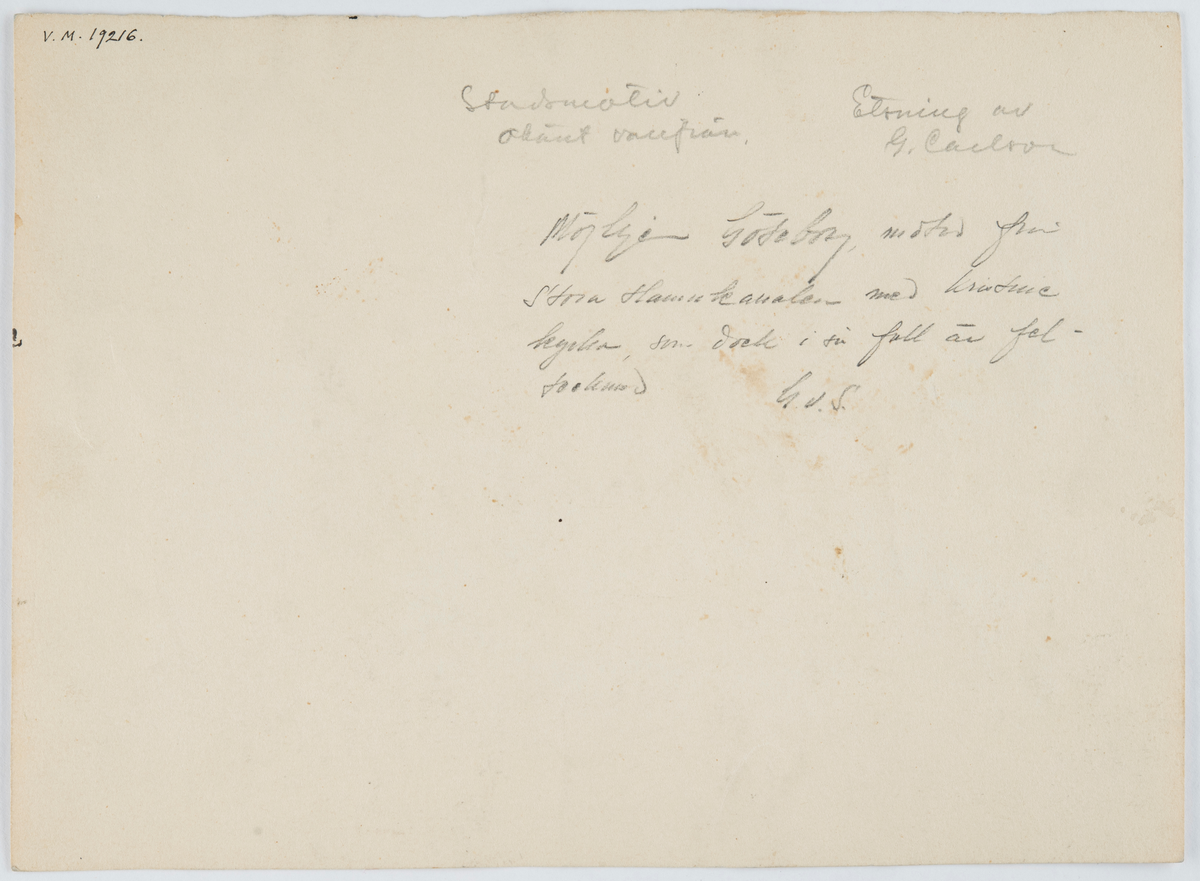 V.M. 19216.
Stadsmotiv
okänt varifrån.
Etsning av
G. Carlson
Möjligen Göteborg, motiv från
Stora Hamnkanalen med Kristine
kyrka, som dock i så fall är fel-
tecknad
G.v.S.